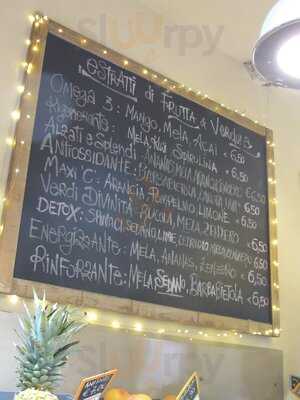 Sluurpy
estratti di Frutta & Verdura
Omega 3: Mango, Mela, Açai € 6,50
Rigenerante: Mela, Kiwi, Spirulina € 6,50
Alzati e Splendi: Ananas, Mela, € 6,50
Antiossidante: € 6,50
Maxi C: Arancia, Pompelmo, Limone € 6,50
Verdi Divinità: Rucola, Mela, Zenzero € 6,50
Detox: Spinaci, Sedano, Lime, Cetriolo € 6,50
Energizzante: Mela, Ananas, Zenzero € 6,50
Rinforzante: Mela, Sedano, Barbabietola € 6,50
Sluurpy